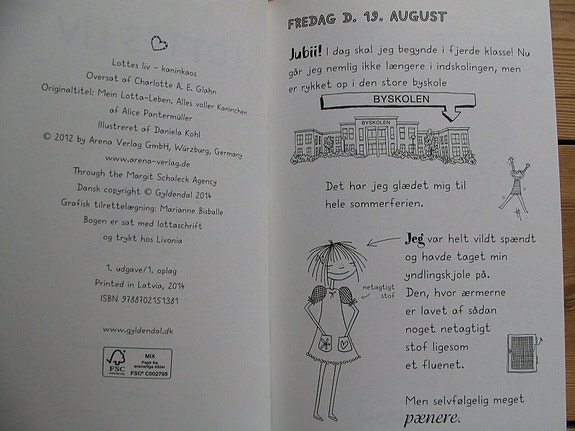 Lottes liv - kaninkaos
Oversat af Charlotte A. E. Glahn
Originaltitel: Mein Lotta-Leben. Alles voller Kaninchen
af Alice Pantermüller
Illustreret af Daniela Kohl
© 2012 by Arena Verlag GmbH, Würzburg, Germany
www.arena-verlag.de
Through the Margit Schaleck Agency
Dansk copyright © Gyldendal 2014
Grafisk tilrettelægning: Marianne Bisballe
Bogen er sat med lottaschrift
og trykt hos Livonia
1. udgave/1. oplag
Printed in Latvia, 2014
ISBN 9788702151381
www.gyldendal.dk
FSC
www.fsc.org
MIX
Papir fra
ansvarlige kilder
FSC® C002795
FREDAG D. 19. AUGUST
Jubii! I dag skal jeg begynde i fjerde klasse! Nu
går jeg nemlig ikke længere i indskolingen, men
er rykket op i den store byskole
BYSKOLEN
BYSKOLEN
Det har jeg glædet mig til
hele sommerferien.
Jeg var helt vildt spændt
og havde taget min
yndlingskjole på.
Den, hvor ærmerne
er lavet af sådan
noget netagtigt
stof ligesom
et fluenet.
netagtigt
stof
Men selvfølgelig meget
pænere.